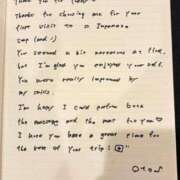 Thank you for today!
Thanks for choosing me for your
first visit to a Japanese
sap (and!)
You seemed a bit nervous at first,
but I'm glad you enjoyed your self.
You were really impressed by
my skills.
I'm happy I could perform both
the massage and the mat for you♡
I hope you have a great time for
the rest of your trip!